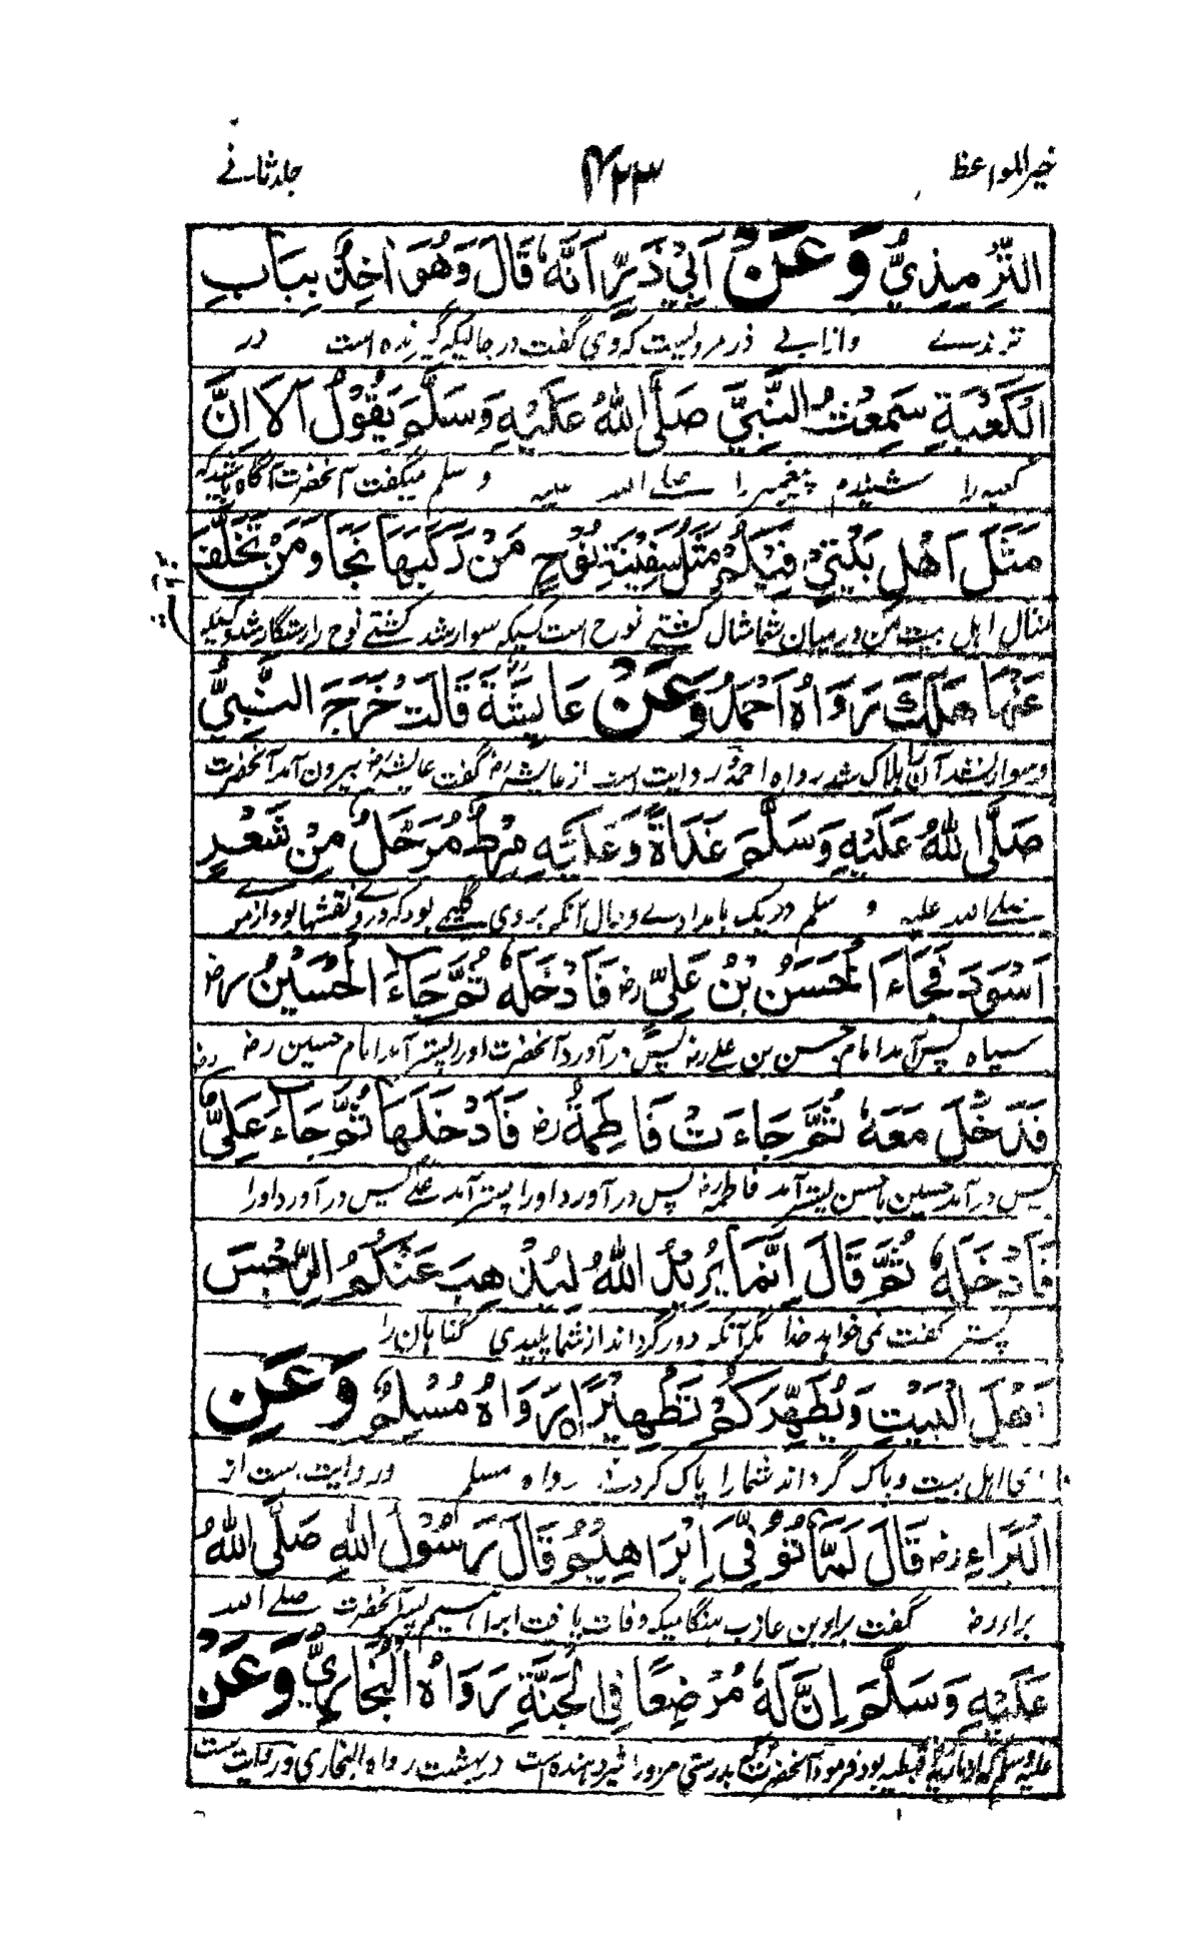 خیر المواعظ ۴۲۳ جلد ثانے
التِّرْمِذِيُّ وَعَنْ اَبِيْ ذَرٍّ اَنَّهٗ قَالَ وَهُوَ اٰخِذٌ بِبَابِ
ترمذے وازابے ذر مرویست که وی گفت در حالیکه گیرنده است در
الْكَعْبَةِ سَمِعْتُ النَّبِيَّ صَلَّى اللهُ عَلَيْهِ وَسَلَّمَ يَقُوْلُ اَلَا اِنَّ
کعبه را شنیدم پیغمبر را صلے الله علیه و سلم میگفت آنحضرت آگاه باشید که
مَثَلَ اَهْلِ بَيْتِيْ فِيْكُمْ مَثَلُ سَفِيْنَةِ نُوْحٍ مَنْ رَكِبَهَا نَجَا وَمَنْ تَخَلَّفَ
مثال اہل بیت من درمیان شما مثال کشتے نوح است کسیکه سوار شد کشتے نوح را رستگار شد و کسیکه
عَنْهَا هَلَكَ رَوَاهُ اَحْمَدُ وَعَنْ عَايِشَةَ قَالَتْ خَرَجَ النَّبِيُّ
و سوار نشد آن را ہلاک شد رواه احمد و روایت است از عایشه رض گفت عایشه رض بیرون آمد آنحضرت
صَلَّى اللهُ عَلَيْهِ وَسَلَّمَ غَدَاةً وَعَلَيْهِ مِرْطٌ مُرَحَّلٌ مِنْ شَعْرٍ
صلے الله علیه و سلم در یک بامدادے و حال آنکه بر وی گلیمے بود که در وے نقشها بود از موے
اَسْوَدَ فَجَاءَ الْحَسَنُ بْنُ عَلِيٍّ رض فَاَدْخَلَهٗ ثُمَّ جَاءَ الْحُسَيْنُ رض
سیاه پس آمد امام حسن بن علے رض پس در آورد آنحضرت او را پستر آمد امام حسین رض
فَدَخَلَ مَعَهٗ ثُمَّ جَاءَتْ فَاطِمَةُ رض فَاَدْخَلَهَا ثُمَّ جَاءَ عَلِيٌّ
پس در آمد حسین با حسن پستر آمد فاطمه رض پس در آورد او را پستر آمد علے پس در آورد او را
فَاَدْخَلَهٗ ثُمَّ قَالَ اِنَّمَا يُرِيْدُ اللهُ لِيُذْهِبَ عَنْكُمُ الرِّجْسَ
پستر گفت نمی خواهد خدا مگر آنکه دور گرداند از شما پلیدی گناهان را
اَهْلَ الْبَيْتِ وَيُطَهِّرَكُمْ تَطْهِيْرًا رَوَاهُ مُسْلِمٌ وَعَنِ
ای اہل بیت و پاک گرداند شما را پاک کردنے رواه مسلم و روایت ست از
الْبَرَاءِ رض قَالَ لَمَّا تُوُفِّيَ اِبْرَاهِيْمُ قَالَ رَسُوْلُ اللهِ صَلَّى اللهُ
براء رض گفت براء بن عازب ہنگامیکه وفات یافت ابراہیم پسر آنحضرت صلے الله
عَلَيْهِ وَسَلَّمَ اِنَّ لَهٗ مُرْضِعًا فِي الْجَنَّةِ رَوَاهُ الْبُخَارِيُّ وَعَنْ
علیه و سلم که از ماریه قبطیه بود فرمود آنحضرت بدرستی مر او را شیر دهنده است در بهشت رواه البخاری و روایت ست